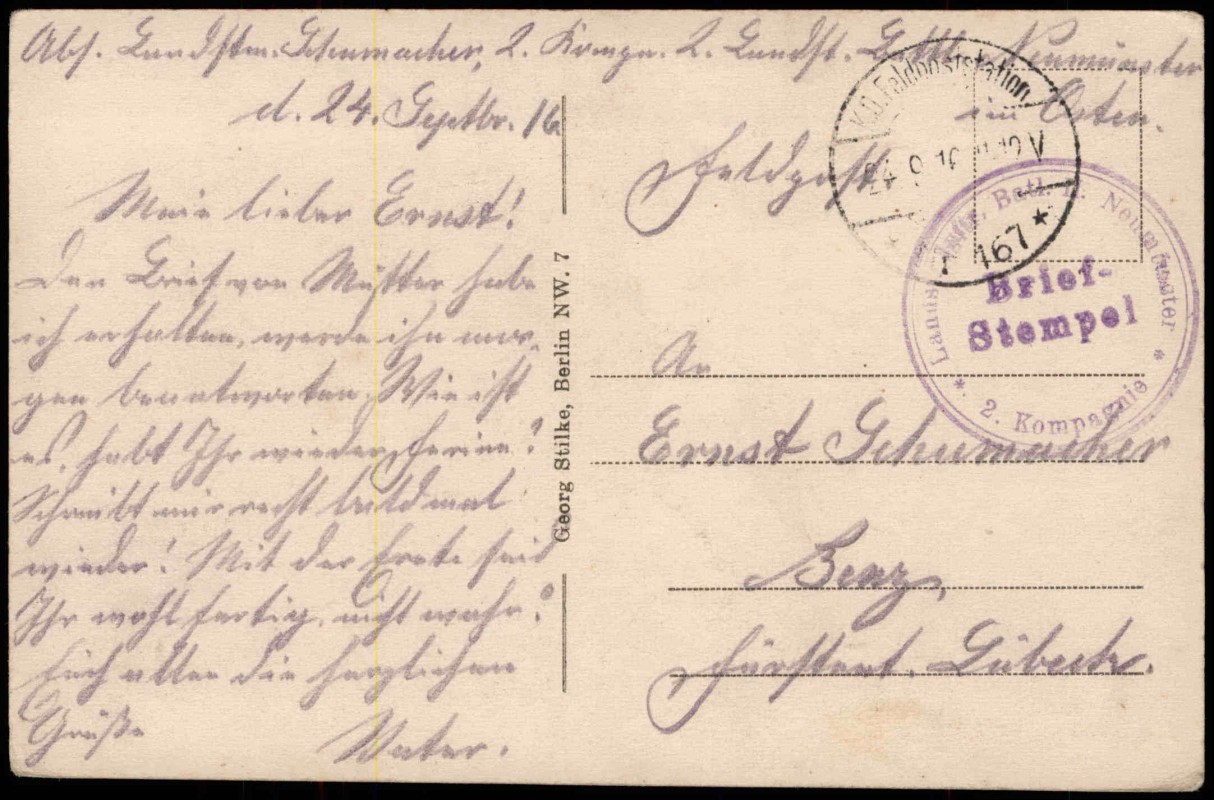 Abs. Landstm. Schumacher, 2. Komp. 2. Landst. Battl. Neumünster
im Osten.
d. 24. Septbr. 16
Mein lieber Ernst!
Den Brief von Mutter habe
ich erhalten, werde ihn mor-
gen beantworten. Wie ist
es, habt Ihr wieder Ferien?
Schreibt mir recht bald mal
wieder! Mit der Ernte seid
Ihr wohl fertig, nicht wahr?
Euch allen die herzlichen
Grüße
Vater.
Georg Stilke, Berlin NW. 7
Feldpost
K.D. Feldpoststation
24 9 16 11-12 V
167 *
Landst. Inftr. Batl. Neumünster
Brief-
Stempel
* 2. Kompagnie *
An
Ernst Schumacher
Benz,
Fürstent. Lübeck.